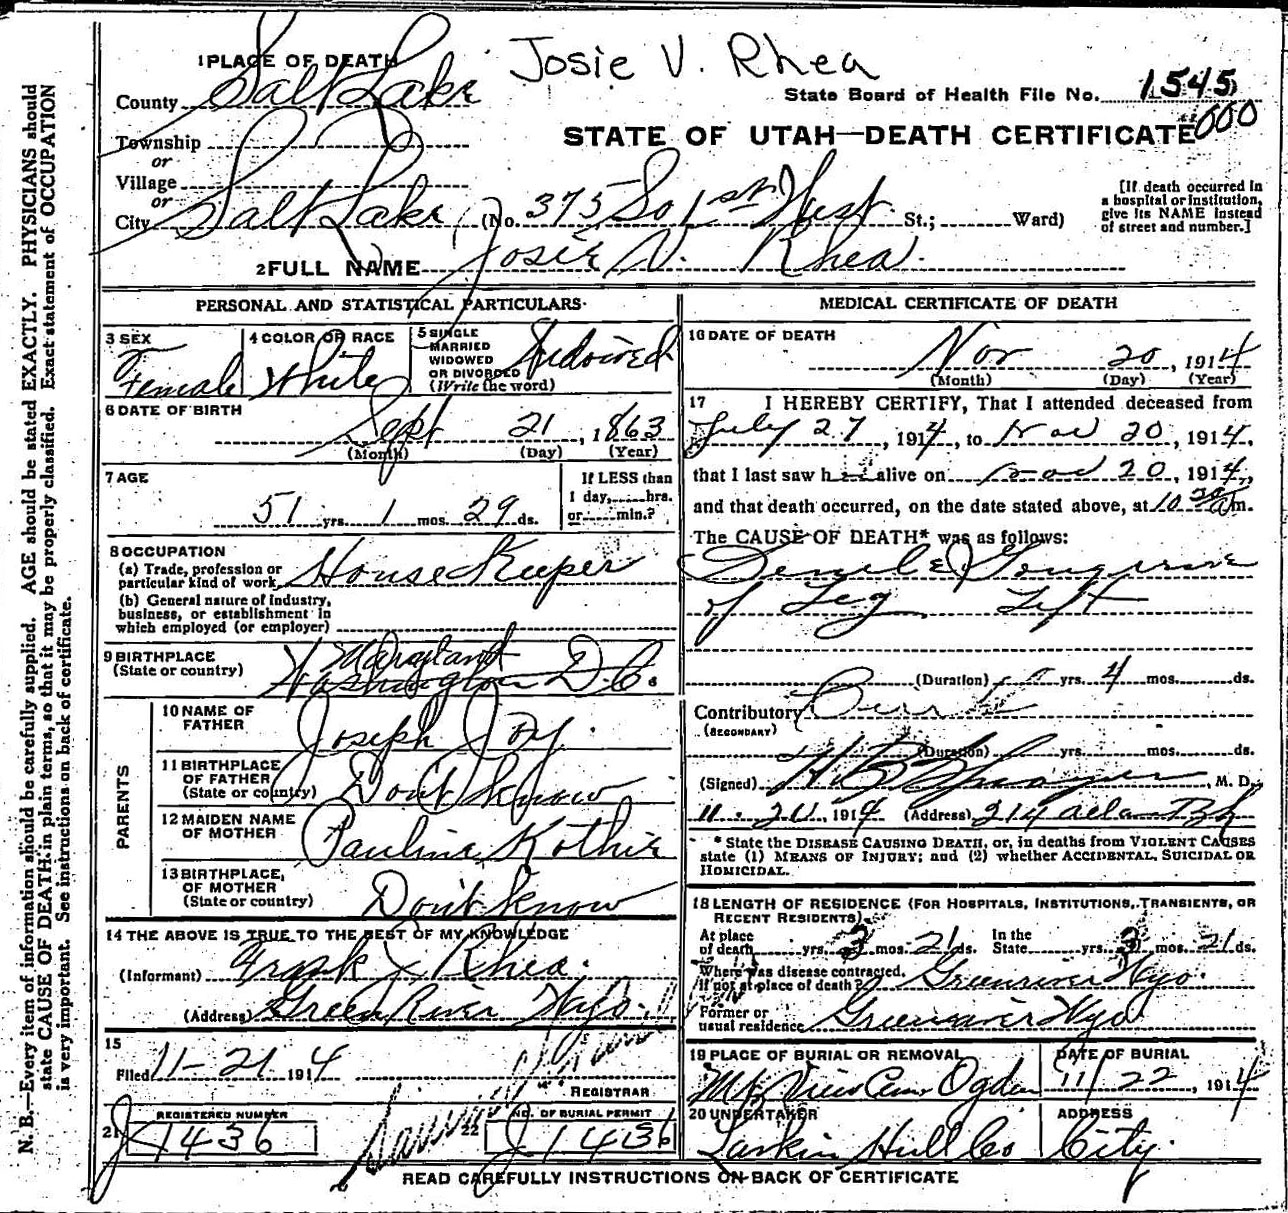 Josie V. Rhea
1 PLACE OF DEATH
County Salt Lake
State Board of Health File No. 1545
000
Township
or
Village
or
City Salt Lake (No. 375 So 1st West St.; Ward)
STATE OF UTAH—DEATH CERTIFICATE
[If death occurred in
a hospital or institution,
give its NAME instead
of street and number.]
2 FULL NAME Josie V. Rhea.
PERSONAL AND STATISTICAL PARTICULARS
3 SEX
Female
4 COLOR OR RACE
White
5 SINGLE
MARRIED
WIDOWED
OR DIVORCED
(Write the word)
Widowed
6 DATE OF BIRTH
Sept 21, 1863
(Month) (Day) (Year)
7 AGE
51 yrs. 1 mos. 29 ds.
If LESS than
1 day, hrs.
or min.?
8 OCCUPATION
(a) Trade, profession or
particular kind of work House Keeper
(b) General nature of industry,
business, or establishment in
which employed (or employer)
9 BIRTHPLACE
(State or country)
Maryland
Washington D.C.
PARENTS
10 NAME OF
FATHER
Joseph Joy.
11 BIRTHPLACE
OF FATHER
(State or country)
Don't Know
12 MAIDEN NAME
OF MOTHER
Pauline Kothie
13 BIRTHPLACE,
OF MOTHER
(State or country)
Don't Know
14 THE ABOVE IS TRUE TO THE BEST OF MY KNOWLEDGE
(Informant) Frank J Rhea.
(Address) Green River Wyo.
15
Filed 11-21 1914
REGISTRAR
21 REGISTERED NUMBER
J 1436
22 NO. OF BURIAL PERMIT
J 1436
MEDICAL CERTIFICATE OF DEATH
16 DATE OF DEATH
Nov 20, 1914
(Month) (Day) (Year)
17 I HEREBY CERTIFY, That I attended deceased from
July 27, 1914, to Nov 20, 1914,
that I last saw her alive on Nov 20, 1914,
and that death occurred, on the date stated above, at 10 m.
The CAUSE OF DEATH* was as follows:
Senile Gangrene
of Leg Left
(Duration) yrs. 4 mos. ds.
Contributory
(SECONDARY)
(Duration) yrs. mos. ds.
(Signed) M. D.
11-20, 1914 (Address) 214
* State the DISEASE CAUSING DEATH, or, in deaths from VIOLENT CAUSES
state (1) MEANS OF INJURY; and (2) whether ACCIDENTAL, SUICIDAL OR
HOMICIDAL.
18 LENGTH OF RESIDENCE (FOR HOSPITALS, INSTITUTIONS, TRANSIENTS, OR
RECENT RESIDENTS)
At place
of death yrs. 3 mos. 21 ds.
In the
State yrs. 3 mos. 21 ds.
Where was disease contracted,
If not at place of death? Greenriver Wyo.
Former or
usual residence Greenriver Wyo
19 PLACE OF BURIAL OR REMOVAL
Mt View Cem Ogden
DATE OF BURIAL
11/22, 1914
20 UNDERTAKER
Larkin Hull Co
ADDRESS
City.
READ CAREFULLY INSTRUCTIONS ON BACK OF CERTIFICATE
N. B.—Every item of information should be carefully supplied. AGE should be stated EXACTLY. PHYSICIANS should
state CAUSE OF DEATH in plain terms, so that it may be properly classified. Exact statement of OCCUPATION
is very important. See instructions on back of certificate.